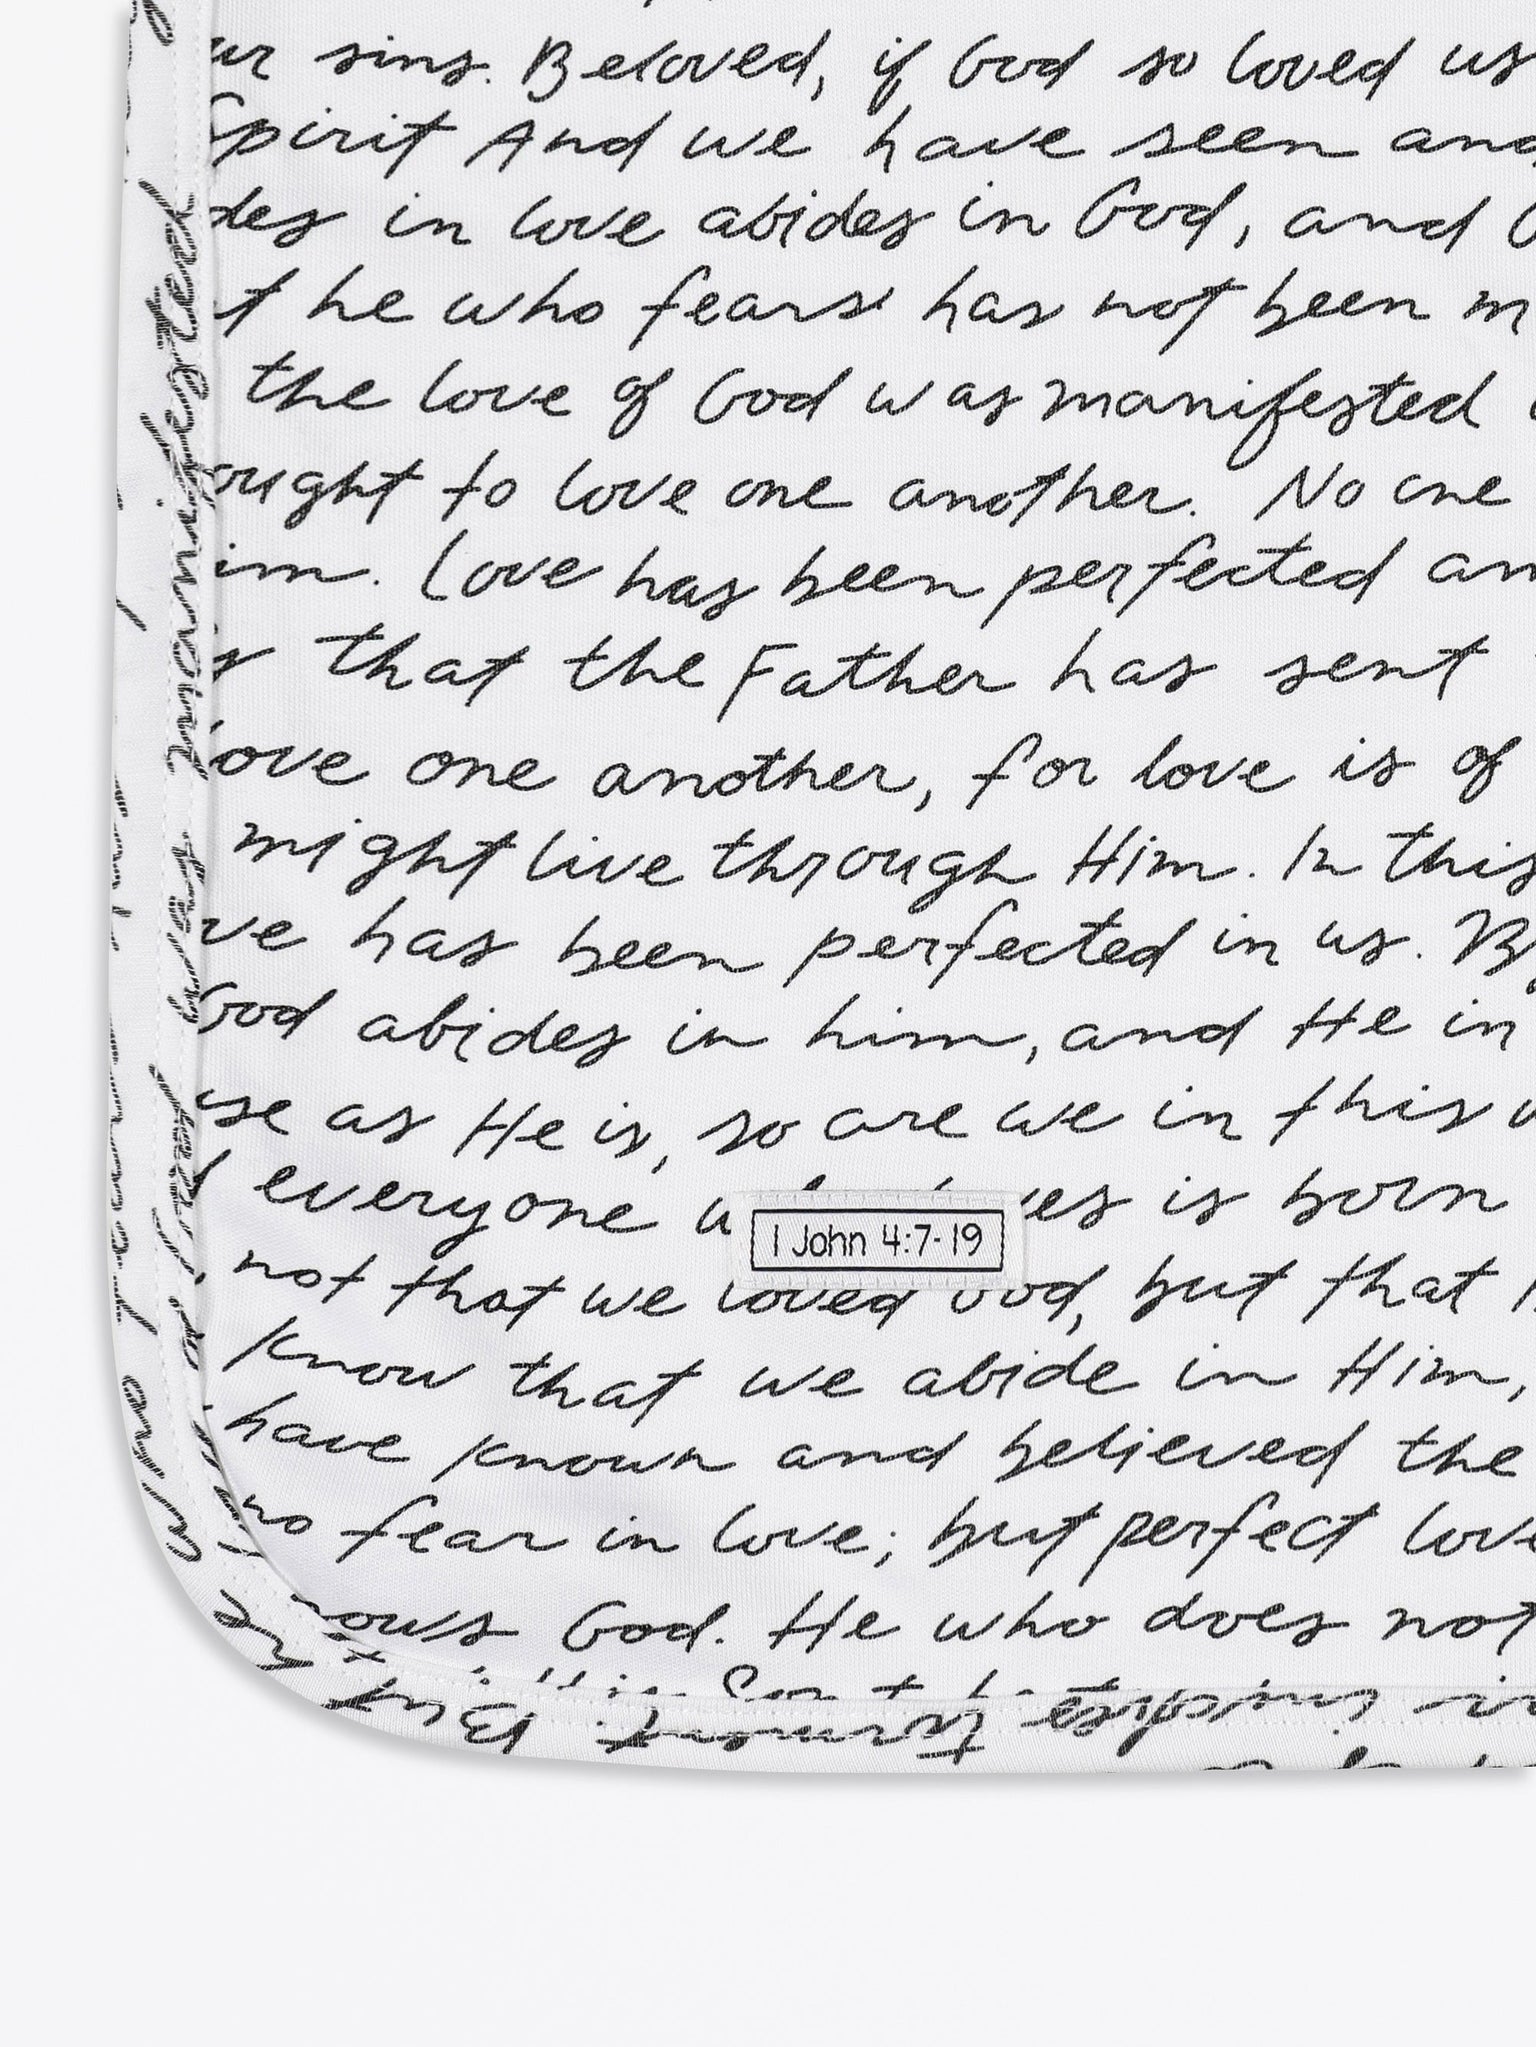 sins. Beloved, if God so loved us
Spirit And we have seen and
in love abides in God, and
he who fears has not been
the love of God was manifested
ought to love one another. No one
Love has been perfected
that the Father has sent
love one another, for love is of
might live through Him. In this
has been perfected in us.
God abides in him, and He in
as He is, so are we in this
everyone is born
1 John 4:7-19
not that we loved God, but that
Know that we abide in Him,
have known and believed the
no fear in love; but perfect love
God. He who does not
manifested
was